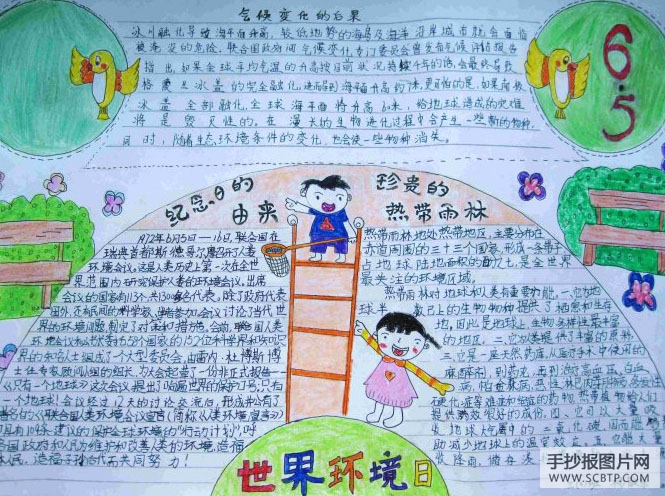 气候变化的后果
冰川融化导致海平面升高，较低地势的海岛及海洋沿岸城市就会面临
被淹没的危险，联合国政府间气候变化专门委员会曾发布气候评估报告
指出，如果全球平均气温的升高按目前状况持续千年的话，会最终导致
格 冰盖的完全融化，进而导致海平面升高约7米，更可怕的是，如果南极
冰盖全部融化，全球海平面将升高60米，给地球造成的灾难
将是毁灭性的。在漫长的生物进化过程中会产生一些新的物种，
同时，随着生态环境条件的变化，也会使一些物种消失。
6.5
纪念日的
由来
1972年6月5日——16日，联合国在
瑞典首都斯德哥尔摩召开了人类
环境会议。这是人类历史上第一次在全世
界范围内研究保护人类的环境会议。出席
会议的国家有113个，共1300多名代表。除了政府代表
团外，还有民间的科学家、学者参加会议讨论了当代世
界的环境问题，制定了对策和措施。会前，联合国人类
环境会议秘书长委托58个国家的152位科学界和知识
界的知名人士组成了一个大型委员会，由雷内·杜博斯博
士任专家顾问小组的组长，为大会起草了一份非正式报告—
《只有一个地球》这次会议提出了响遍世界的环境保护口号：只有
一个地球！会议经过12天的讨论交流后，形成并公布了
著名的《联合国人类环境会议宣言》（简称《人类环境宣言》）
和具有109条建议的保护全球环境的“行动计划”，呼
吁各国政府和人民为维护和改善人类的环境，造福
全体人民，造福子孙后代而共同努力！
珍贵的
热带雨林
热带雨林地处热带地区，主要分布在
赤道周围的三十三个国家，形成一条带子
占地球陆地面积的 七，是全世界
最关注的环境区域。
热带雨林对地球和人类有重要功能，一、它为地
球 数已上的生物物种提供了栖息和生存
地，因此是地球上生物多样性最丰富
的地区。二、它为人类提供了丰富的
三、它是一座天然药库，从医疗手术使用的
麻醉剂，到药
病、
硬化症等难症和绝症的药物，热带植物给人们
提供 很好的成份。四、它可以大量吸
收地球大气层中的二氧化碳，因而能
助减少地球上的温室效应。五、它能大量
吸
世界环境日
手抄报图片网
WWW.SCBTP.COM